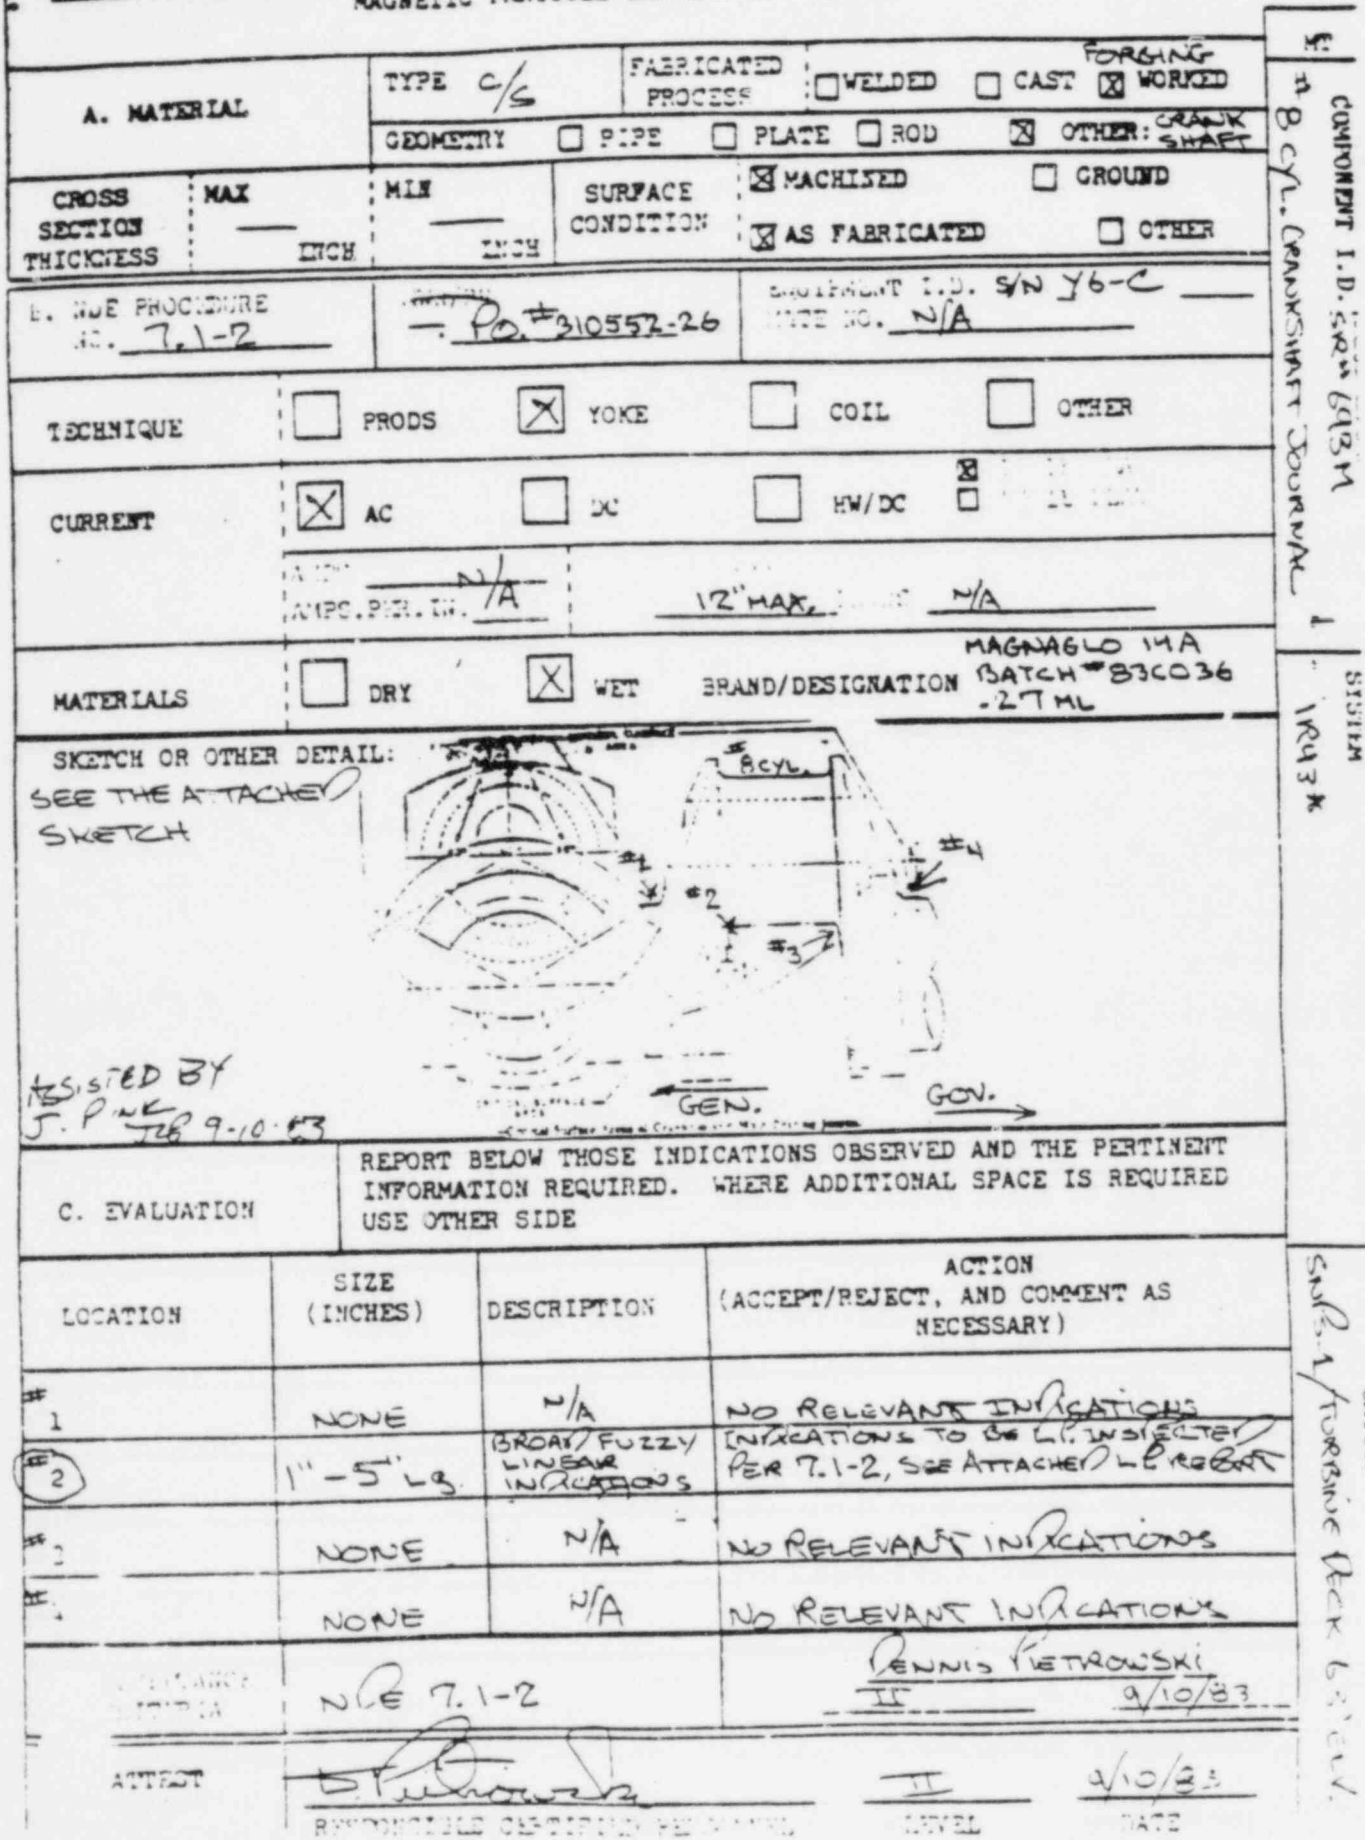 MAGNETIC
MT
A. MATERIAL
TYPE C/S
FABRICATED PROCESS
WELDED
CAST
FORGING
WORKED
GEOMETRY
PIPE
PLATE
ROD
OTHER: CRANK SHAFT
CROSS SECTION THICKNESS
MAX — INCH
MIN — INCH
SURFACE CONDITION
MACHINED
GROUND
AS FABRICATED
OTHER
B. NDE PROCEDURE
NO. 7.1-2
P.O. #310552-26
EQUIPMENT I.D. S/N Y6-C
NOTE NO. N/A
TECHNIQUE
PRODS
YOKE
COIL
OTHER
CURRENT
AC
DC
HW/DC
AMPS.PER.IN. N/A
12" MAX.
N/A
MATERIALS
DRY
WET
BRAND/DESIGNATION
MAGNAGLO 14A
BATCH #83C036
.27 ML
SKETCH OR OTHER DETAIL:
SEE THE ATTACHED
SKETCH
#
8 CYL.
#1
#2
#3
#4
GEN.
GOV.
ASSISTED BY
J. PINK
9-10-83
C. EVALUATION
REPORT BELOW THOSE INDICATIONS OBSERVED AND THE PERTINENT
INFORMATION REQUIRED. WHERE ADDITIONAL SPACE IS REQUIRED
USE OTHER SIDE
LOCATION
SIZE (INCHES)
DESCRIPTION
ACTION
(ACCEPT/REJECT, AND COMMENT AS
NECESSARY)
# 1 NONE N/A NO RELEVANT INDICATIONS
# 2 1" - 5" Lg. BROAD FUZZY LINEAR INDICATIONS INDICATIONS TO BE L.P. INSPECTED PER 7.1-2, SEE ATTACHED LP REPORT
# NONE N/A NO RELEVANT INDICATIONS
# NONE N/A NO RELEVANT INDICATIONS
NDE 7.1-2
DENNIS PIETROWSKI
II 9/10/83
ATTEST
II
9/10/83
LEVEL
DATE
COMPONENT I.D.
# 8 CYL. CRANKSHAFT JOURNAL
SYSTEM
1R43*
SNPS-1/TURBINE DECK